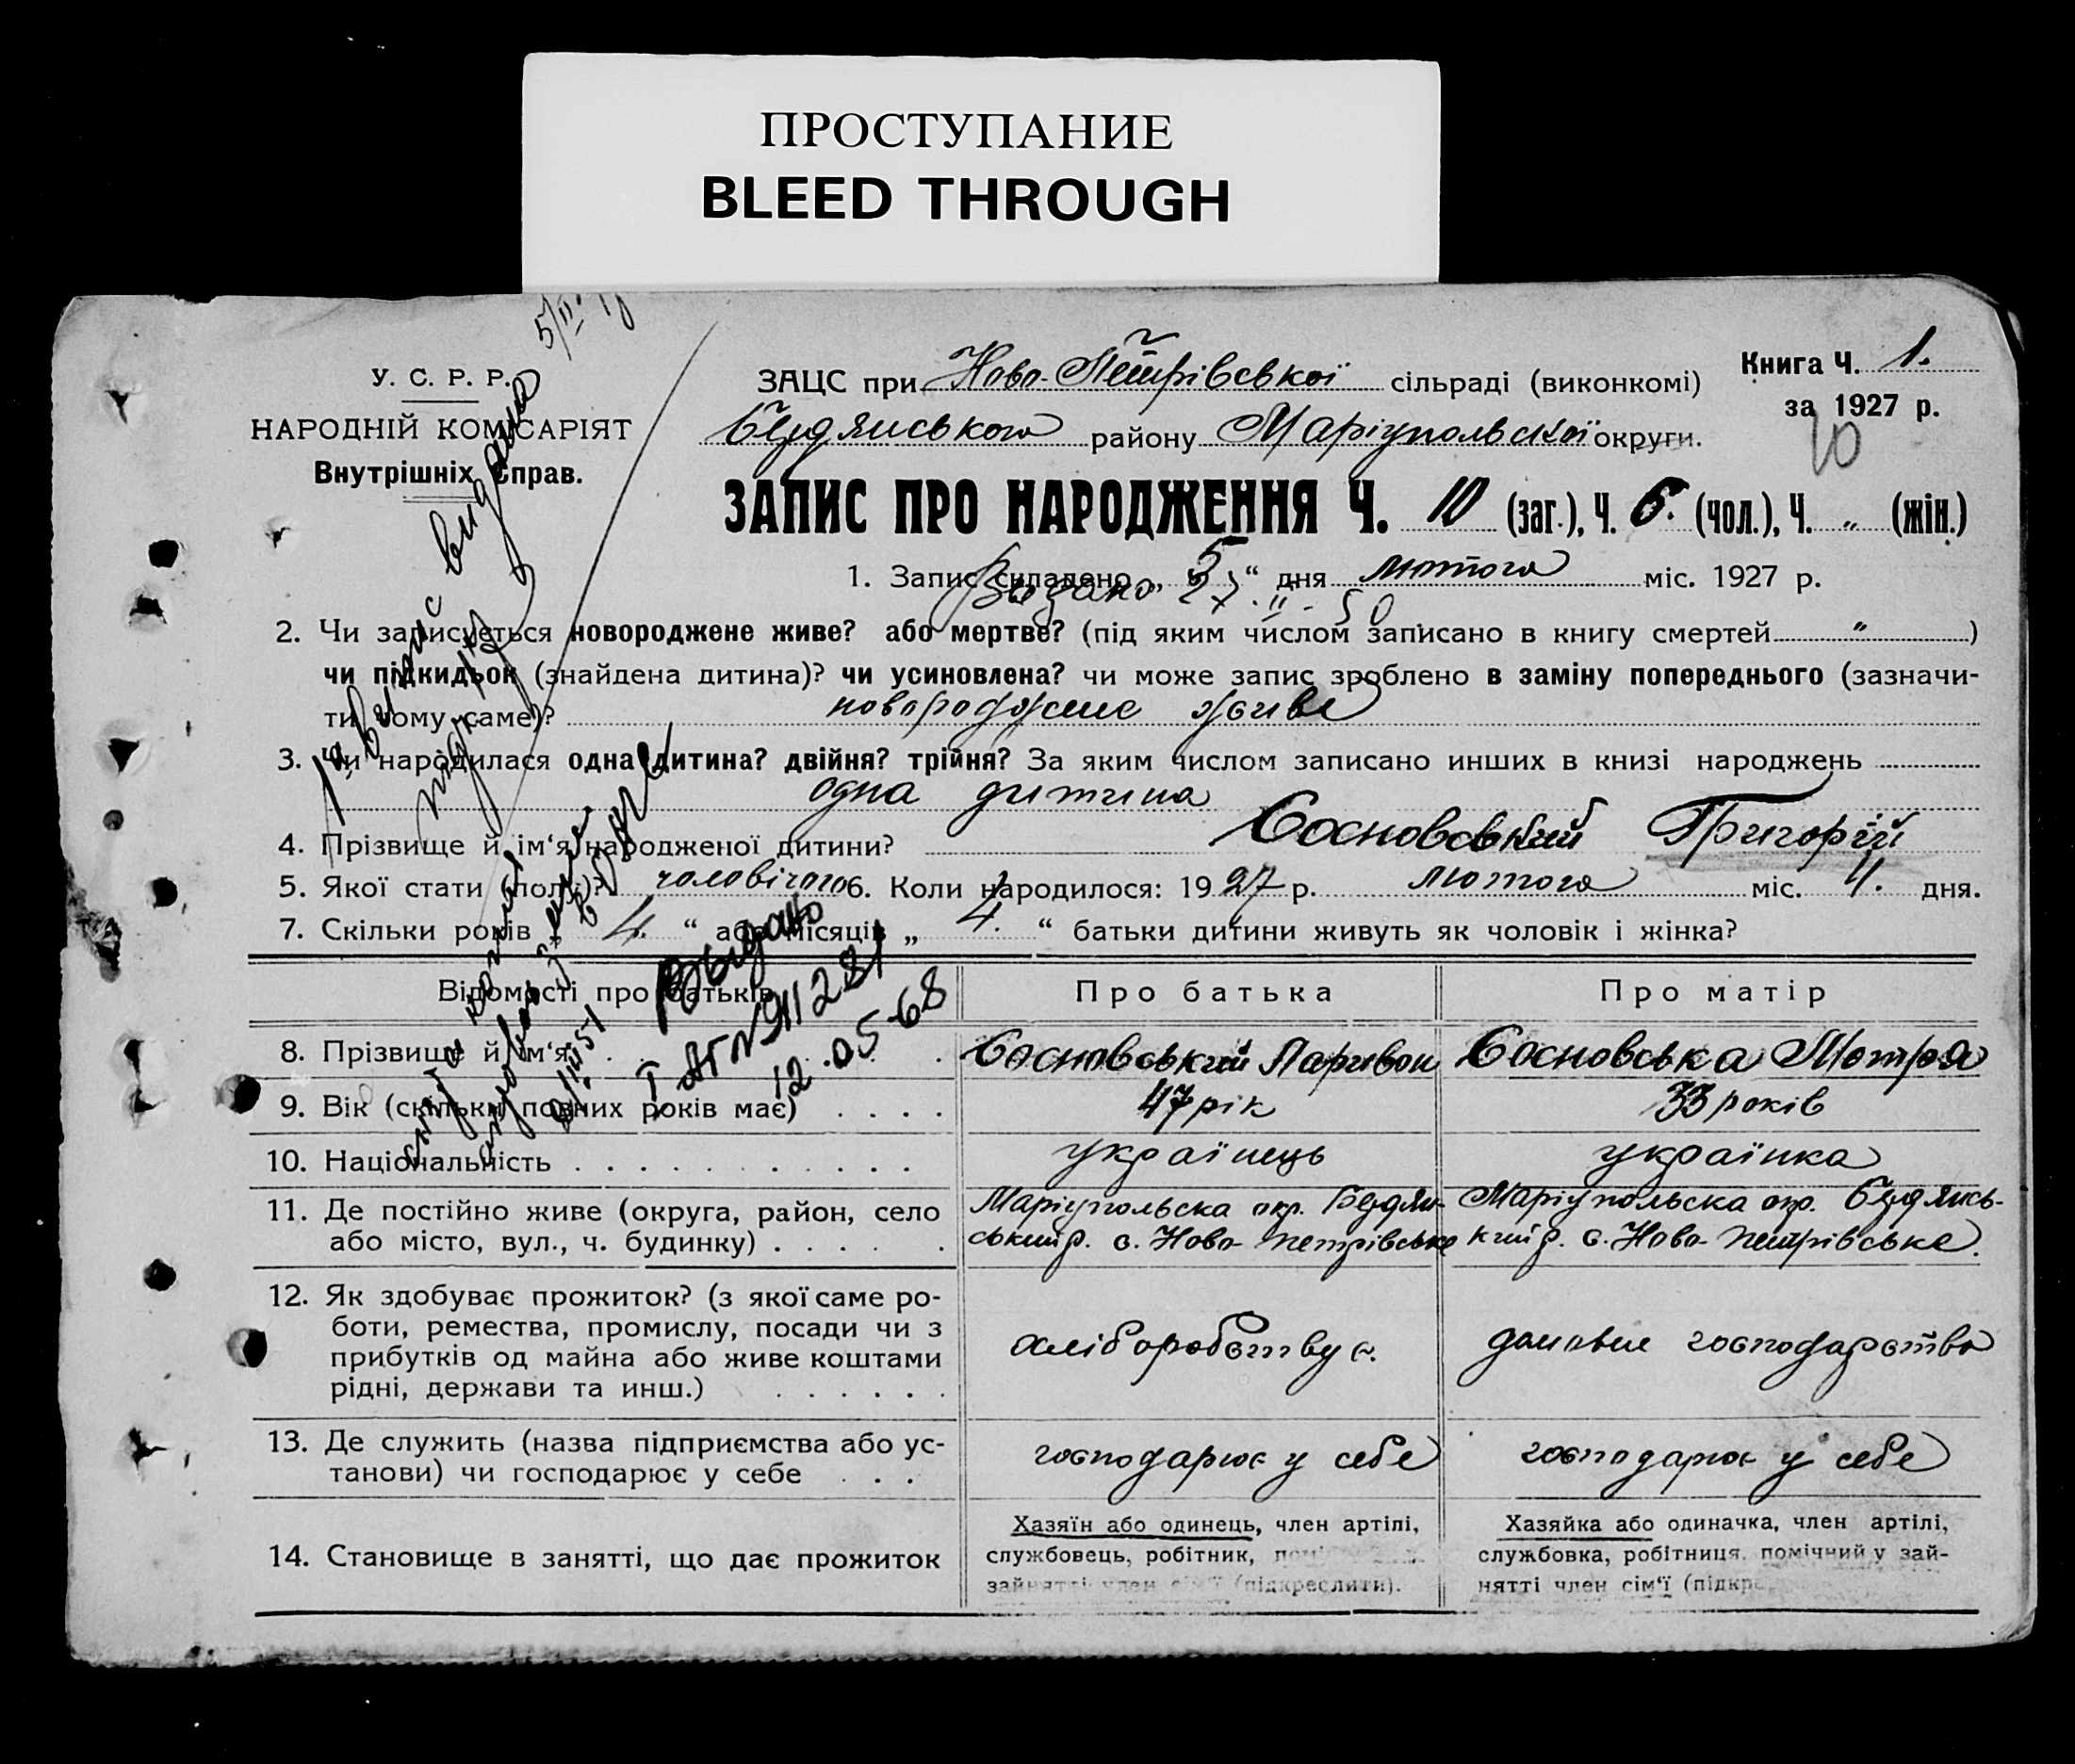 ПРОСТУПАНИЕ
BLEED THROUGH
У. С. Р. Р.
НАРОДНІЙ КОМІСАРІЯТ
Внутрішніх Справ.
ЗАЦС при Ново-Петрівської сільраді (виконкомі)
Книга Ч. 1.
за 1927 р.
10
Бердянського району Маріупольської округи.
ЗАПИС ПРО НАРОДЖЕННЯ Ч. 10 (заг.), Ч. 6. (чол.), Ч. „ (жін.)
1. Запис складено „ 5 “ дня лютого міс. 1927 р.
2. Чи записується новороджене живе? або мертве? (під яким числом записано в книгу смертей „ )
чи підкидьок (знайдена дитина)? чи усиновлена? чи може запис зроблено в заміну попереднього (зазначи-
ти чому саме)? новороджене живе
3. Чи народилася одна дитина? двійня? трійня? За яким числом записано инших в книзі народжень
одна дитина
4. Прізвище й ім‘я народженої дитини? Сосновський Григорій
5. Якої стати (полу)? чоловічого 6. Коли народилося: 1927 р. лютого міс. 4. дня.
7. Скільки років „ 4. “ або місяців „ 4. “ батьки дитини живуть як чоловік і жінка?
Выдано
I-АГ № 911281
12.05-68
Відомості про батьків Про батька Про матір
8. Прізвище й ім‘я . . . Сосновський Ларивон Сосновська Мотря
9. Вік (скільки повних років має) . . . . 47 рік 33 років
10. Національність . . . . . . . . . . . українець українка
11. Де постійно живе (округа, район, село Маріупольська окр. Бердян- Маріупольська окр. Бердянсь-
або місто, вул., ч. будинку) . . . . . ський р. с. Ново-Петрівське кий р. с. Ново-Петрівське.
12. Як здобуває прожиток? (з якої саме ро-
боти, ремества, промислу, посади чи з
прибутків од майна або живе коштами хліборобствує. домовие господарство
рідні, держави та инш.) . . . . . .
13. Де служить (назва підприємства або ус-
танови) чи господарює у себе . . . господарює у себе господарює у себе
14. Становище в занятті, що дає прожиток
Хазяїн або одинець, член артілі,
службовець, робітник,
зайнятті член сім‘ї (підкреслити).
Хазяйка або одиначка, член артілі,
службовка, робітниця, помічний у зай-
нятті член сім‘ї